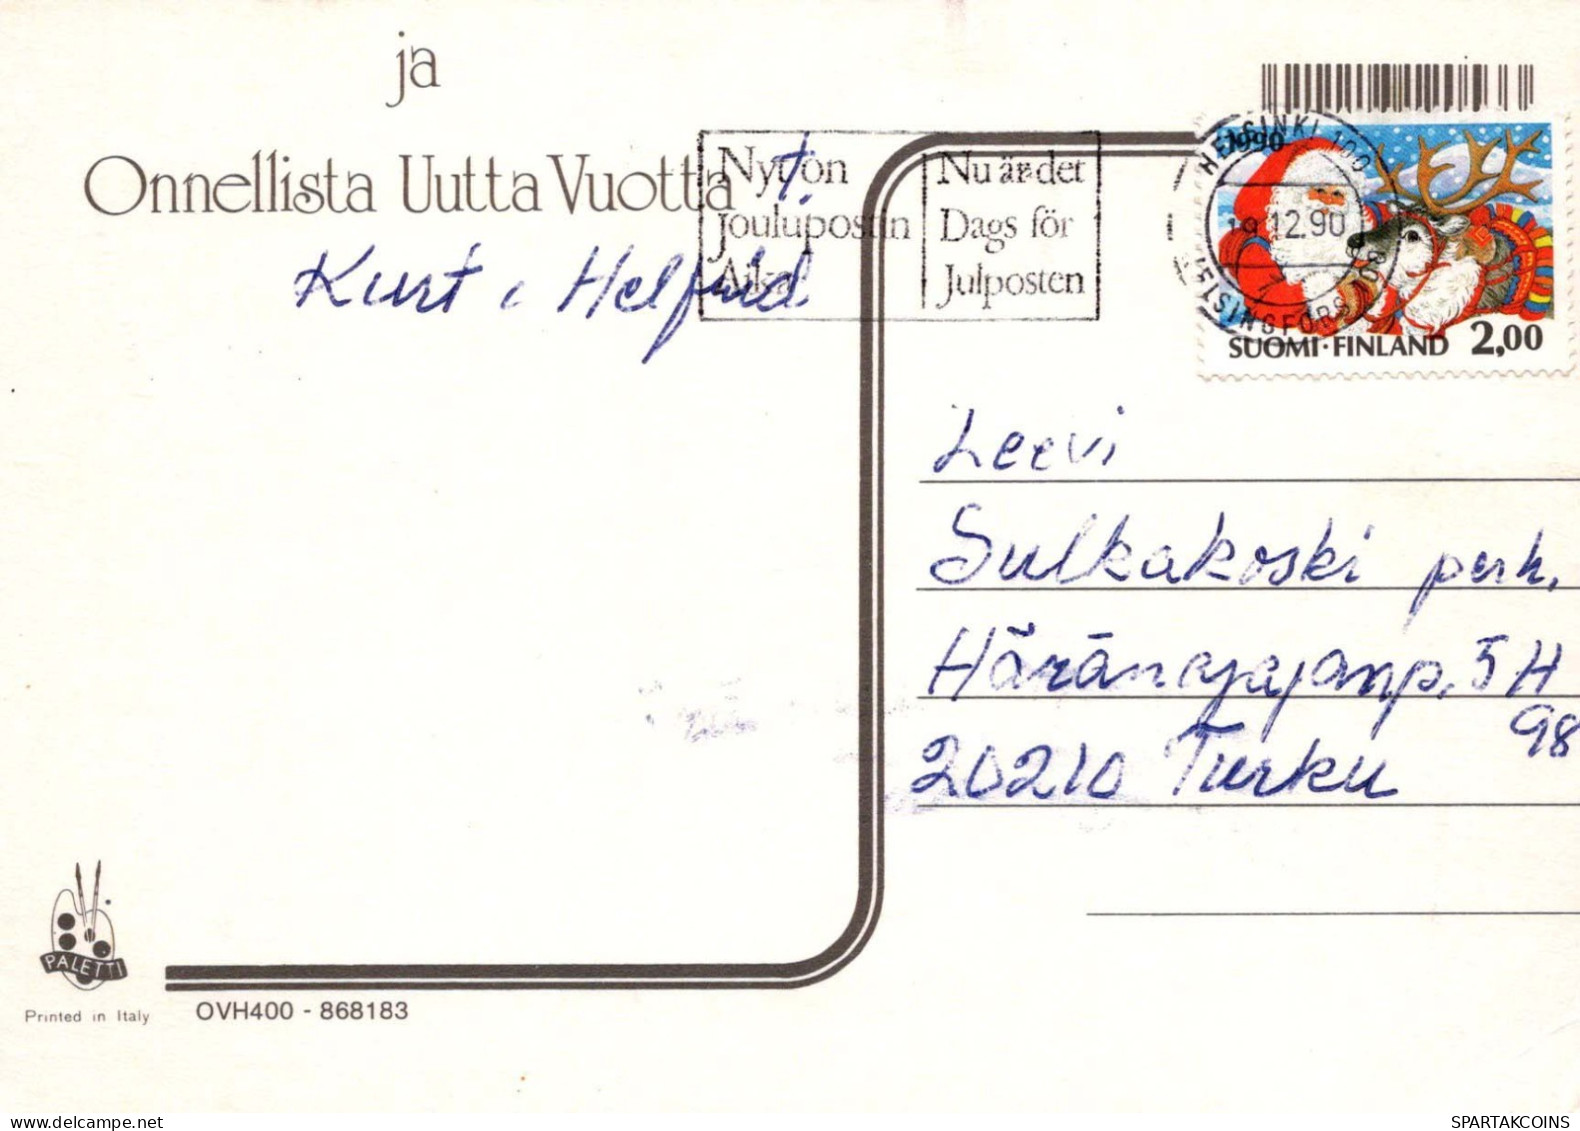 ja
Onnellista Uutta Vuotta
t.
Kurt Helfrid
Nyt on
Joulupostin
Aika
Nu är det
Dags för
Julposten
HELSINKI 100
19.12.90
HELSINGFORS
1990
SUOMI·FINLAND 2,00
Leevi
Sulkakoski perh.
Häränajajanp. 5 H
98
20210 Turku
PALETTI
Printed in Italy
OVH400 - 868183
SPARTAKCOINS
https://www.delcampe.net